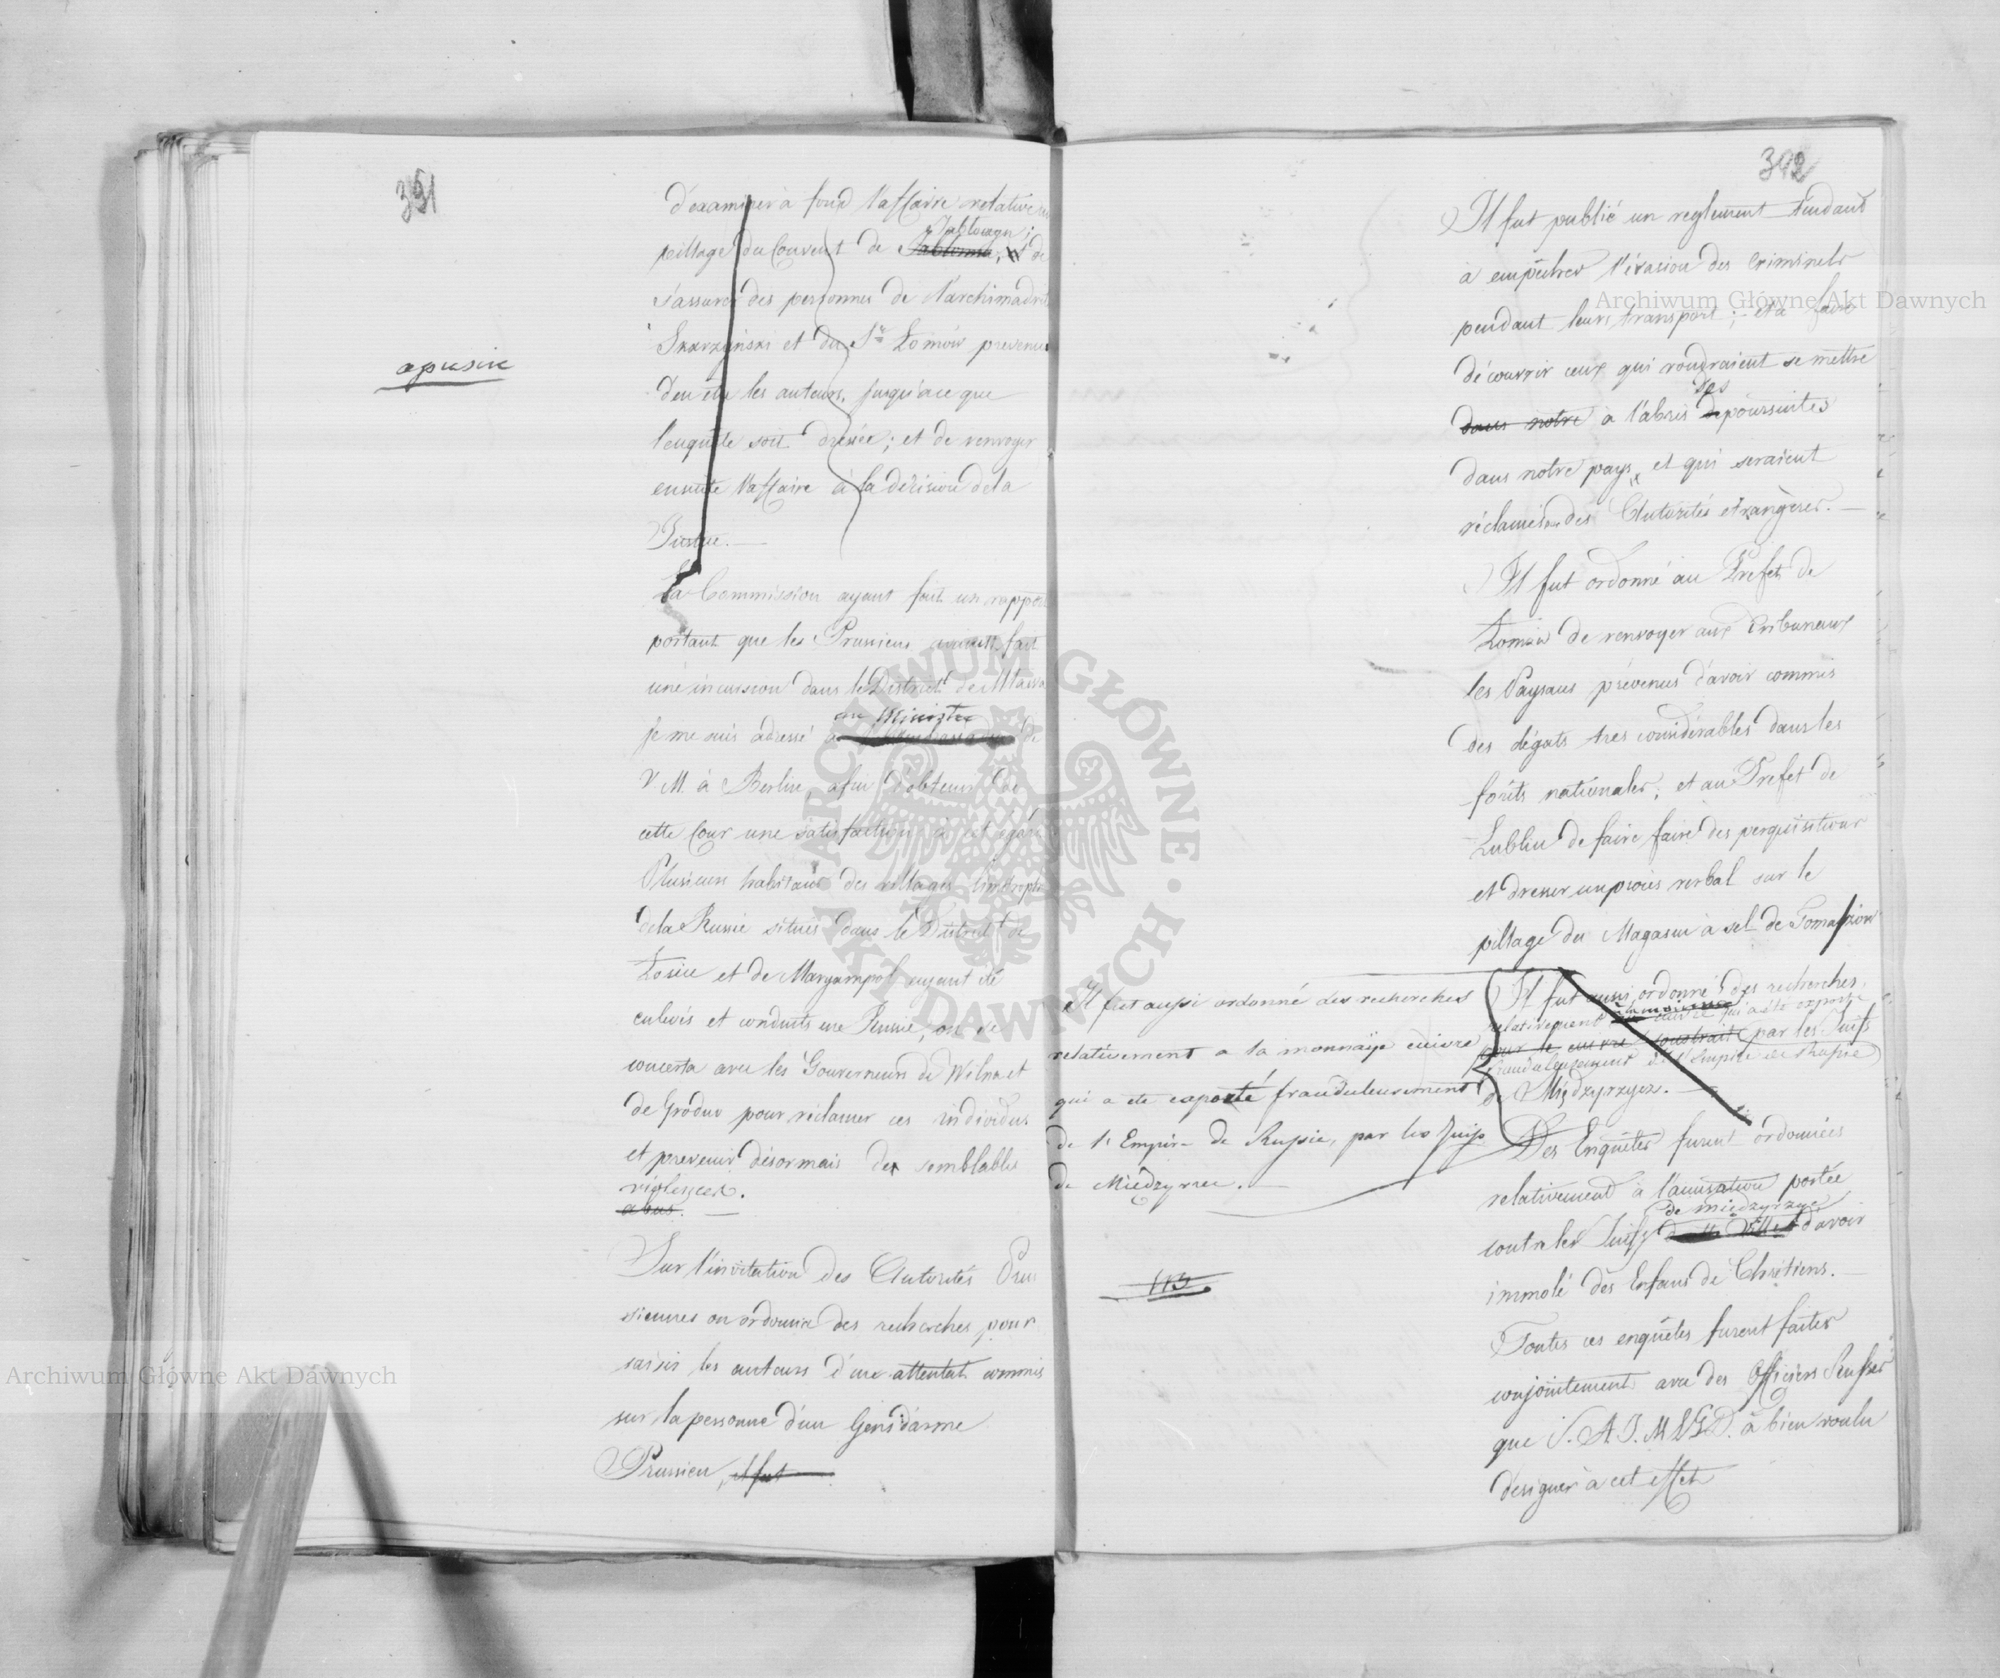 391
opuścić
d'examiner à fond l'affaire relative au
Jabłoczyn;
pillage du Couvent de Jabłonna, et de
s'assurer des personnes de l'archimadrite
Skarzynski et du Sr. Łomów prevenus
d'en être les auteurs, jusqu'à ce que
l'enquête soit dressée; et de renvoyer
ensuite l'affaire à la décision de la
Justice. —
La Commission ayant fait un rapport
portant que les Prussiens avaient fait
une incursion dans le District de Mława
au Ministre
je me suis adressé à l'Ambassadeur de
V. M. à Berlin, afin d'obtenir de
cette Cour une satisfaction à cet égard
Plusieurs habitans des villages limitrophes
de la Russie situés dans le District de
Łosice et de Maryampol ayant été
enlevés et conduits en Russie, on se
concerta avec les Gouverneurs de Wilna et
de Grodno pour réclamer ces individus
et prevenir désormais de semblables
violences.
abus. —
Sur l'invitation des Autorités Prus
siennes on ordonna des recherches pour
saisir les auteurs d'un attentat commis
sur la personne d'un Gensdarme
Prussien, il fut
392
Il fut publié un reglement tendant
à empêcher l'évasion des criminels
pendant leurs transport; et à faire
découvrir ceux qui voudraient se mettre
des
dans notre à l'abris de poursuites
dans notre pays, et qui seraient
réclamés des Autorités etrangères. —
Il fut ordonné au Prefet de
Łomża de renvoyer aux Tribuneaux
les Paysans prévenus d'avoir commis
des dégats tres considérables dans les
forêts nationales; et au Prefet de
Lublin de faire faire des perquisitions
et dresser un procès verbal sur le
pillage du Magasin à sel de Tomaszow
Il fut aussi ordonné des recherches
relativement à la monnaie cuivre qui a été exporté
pour le cuivre soustrait par les Juifs
frauduleusement de l'Empire de Russie
de Międzyrzycz. —
Il fut aussi ordonné des recherches
relativement a la monnaije cuivre
qui a eté exporté frauduleusement
de l'Empire de Russie, par les Juifs
de Miedzyrzec. —
113
Des Enquêtes furent ordonnées
relativement à l'accusation portée
de Miedzyrzyc
contre les Juifs de cette Ville d'avoir
immolé des Enfans de Chrêtiens. —
Toutes ces enquêtes furent faites
conjointement avec des Officiers Russes
que S. A. I. M. L. G. D. a bien voulu
designer à cet effet
Archiwum Główne Akt Dawnych
Archiwum Główne Akt Dawnych
ARCHIWUM GŁÓWNE · AKT DAWNYCH ·